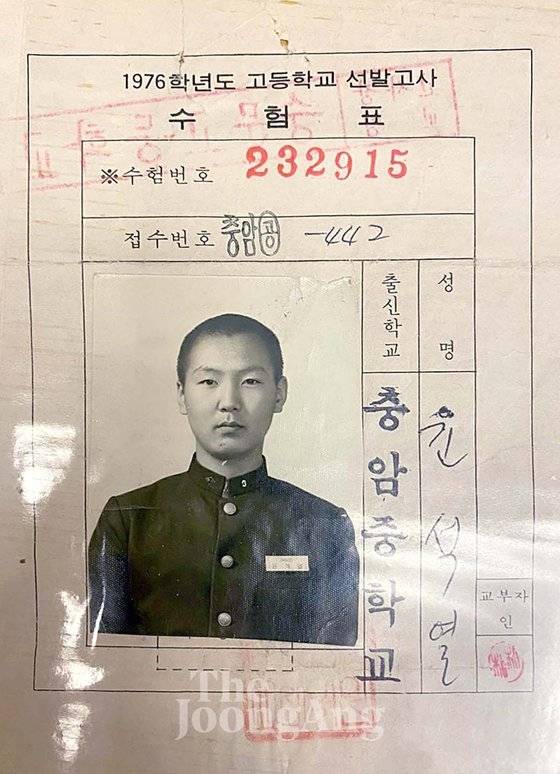 1976학년도 고등학교 선발고사
수 험 표
※수험번호 232915
접수번호 충암공 -442
성명
윤석열
출신학교
충암중학교
교부자
인
The
JoongAng